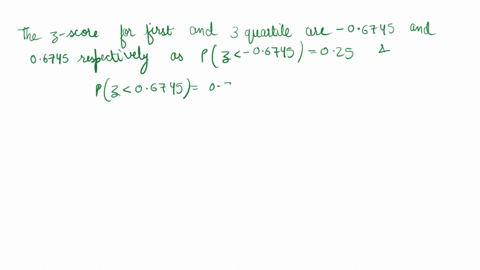 The z-score for first and 3 quartile are -0.6745 and
0.6745 respectively as P(z<-0.6745) = 0.25 &
P(z<0.6745) = 0.